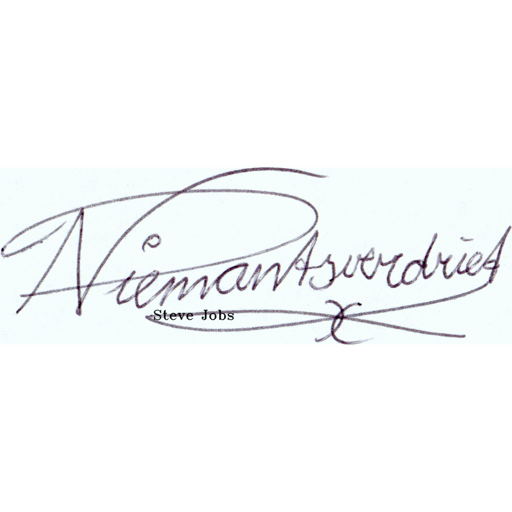 Niemantsverdriet
Steve Jobs